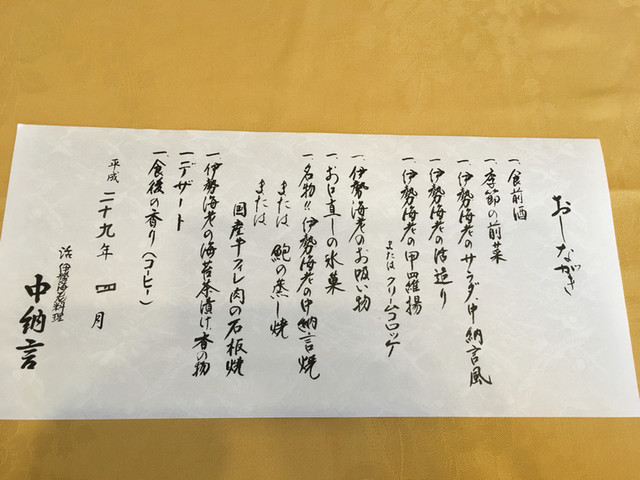 おしながき
一、食前酒
一、季節の前菜
一、伊勢海老のサラダ、中納言風
一、伊勢海老の活造り
一、伊勢海老の甲羅揚
または クリームコロッケ
一、伊勢海老のお吸い物
一、お口直しの氷菓
一、名物!! 伊勢海老の中納言焼
または 鮑の蒸し焼
または
国産牛フィレ肉の石板焼
一、伊勢海老の海苔茶漬け、香の物
一、デザート
一、食後の香り(コーヒー)
平成 二十九年 四月
活 伊勢海老料理
中納言